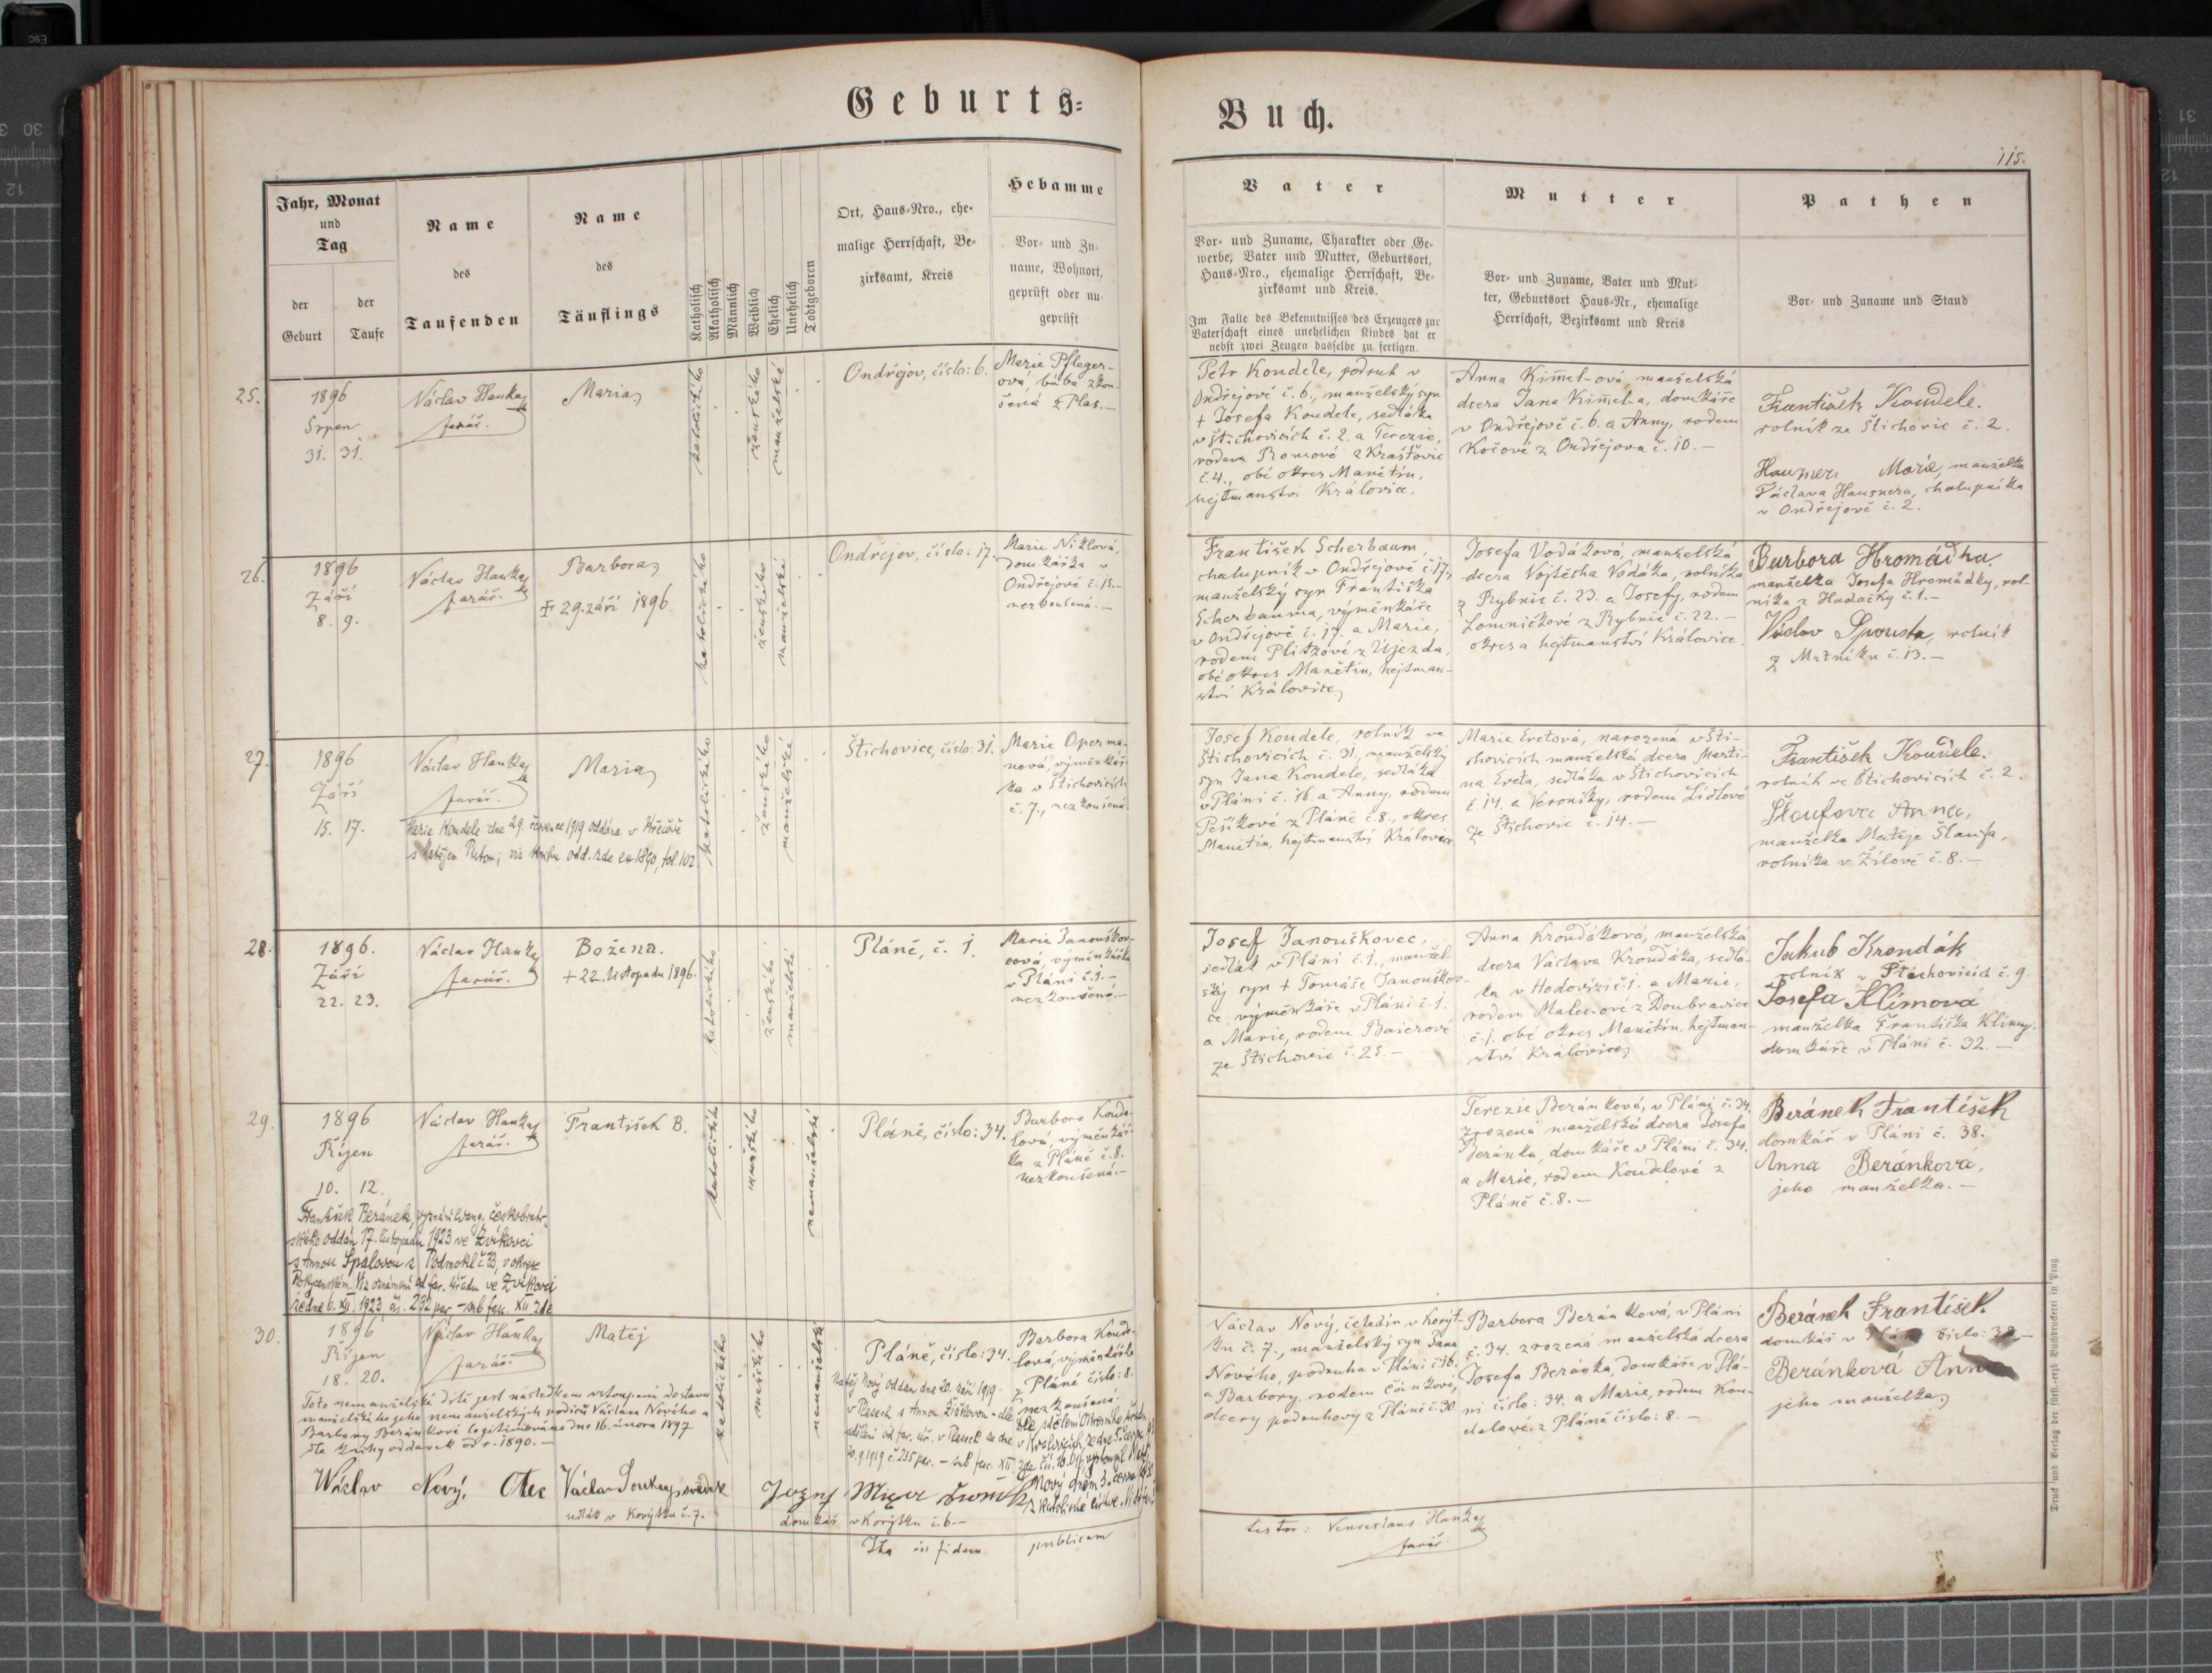 Geburts=
Buch.
115.
Jahr, Monat
und
Tag
der
Geburt
der
Taufe
Name
des
Taufenden
Name
des
Täuflings
Katholisch
Akatholisch
Männlich
Weiblich
Ehelich
Unehelich
Todtgeboren
Ort, Haus=Nro., ehe=
malige Herrschaft, Be=
zirksamt, Kreis
Hebamme
Vor= und Zu=
name, Wohnort,
geprüft oder un
geprüft
Vater
Vor= und Zuname, Charakter oder Ge=
werbe, Vater und Mutter, Geburtsort,
Haus=Nro., ehemalige Herrschaft, Be=
zirksamt und Kreis.
Im Falle des Bekenntnisses des Erzeugers zur
Vaterschaft eines unehelichen Kindes hat er
nebst zwei Zeugen dasselbe zu fertigen.
Mutter
Vor= und Zuname, Vater und Mut=
ter, Geburtsort Haus=Nr., ehemalige
Herrschaft, Bezirksamt und Kreis
Pathen
Vor= und Zuname und Stand
25.
1896
Srpen
31. 31.
Václav Hanka
farář.
Maria
katolického
ženského
manželské
Ondřejov, číslo: 6.
Marie Pfleger-
ová, bába zkou-
šená z Plas.—
Petr Koudele, podruh v
Ondřejově č. 6., manželský syn
+ Josefa Koudele, sedláka
v Štichovicích č. 2. a Terezie,
rodem
č. 4., obé okres Manětín,
hejtmanství Kralovice.
Anna manželská
dcera Jana domkáře
v Ondřejově č. 6. a Anny, rodem
Kočové z Ondřejova č. 10.—
František Koudele.
rolník ze Štichovic č. 2.
Marie, manželka
Václava Hausnera, chalupníka
v Ondřejově č. 2.
26.
1896
Září
8. 9.
Václav Hanka
farář.
Barbora
+ 29. září 1896.
katolického
ženského
manželské
Ondřejov, číslo: 17.
Marie Niklová,
domkářka v
Ondřejově č. 15.—
nezkoušená.—
František Scherbaum,
chalupník v Ondřejově č. 17,
manželský syn Františka
Scherbauma, výměnkáře
v Ondřejově č. 17. a Marie,
rodem z Újezda,
obé okres Manětín, hejtman-
ství Kralovice
Josefa Vodáková, manželská
dcera Vojtěcha Vodáka, rolníka
z Rybnic č. 23. a Josefy, rodem
Lomničkové z Rybnic č. 22.—
okres a hejtmanství Kralovice.
Barbora Hromádka,
manželka Josefa Hromádky, rol-
níka z Hadačky č. 1.—
Václav Spousta, rolník
z Mrtníku č. 13.—
27.
1896
Září
15. 17.
Václav Hanka
farář.
Maria
Marie Koudele dne 29. července 1919 oddána v
s Matějem
katolického
ženského
manželské
Štichovice, číslo: 31.
Marie Operma-
nová, výměnkář-
ka v Štichovicích
č. 7., nezkoušená.
Josef Koudele, rolník ve
Štichovicích č. 31, manželský
syn Jana Koudele, sedláka
v Pláni č. 16. a Anny, rodem
Pešíkové z Pláně č. 8., okres
Manětín, hejtmanství Kralovice
Marie Evetová, narozená v Šti-
chovicích manželská dcera Marti-
na Eveta, sedláka v Štichovicích
č. 14. a Veroniky, rodem Židlové
ze Štichovic č. 14.—
František Koudele.
rolník ve Štichovicích č. 2.
Šlaufova Anna,
manželka Matěje Šlaufa,
rolníka v Žilově č. 8.—
28.
1896.
Září
22. 23.
Václav Hanka
farář.
Božena.
+ 22. listopadu 1896.
katolického
ženského
manželské
Pláně, č. 1.
Marie Janouškov-
cová, výměnkářka
v Pláni č. 1.—
nezkoušená.—
Josef Janouškovec,
sedlák v Pláni č. 1., manžel-
ský syn + Tomáše Janouškov-
ce, výměnkáře v Pláni č. 1.
a Marie, rodem Baierové
ze Štichovic č. 25.—
Anna Krondáková, manželská
dcera Václava Krondáka, sedlá-
ka v Hodovízi č. 1. a Marie,
rodem z Doubravice
č. 1. obé okres Manětín, hejtman-
ství Kralovice
Jakub Krondák
rolník v Štichovicích č. 9.
Josefa Klimová
manželka Františka Klimy,
domkáře v Pláni č. 32.—
29.
1896
Říjen
10. 12.
Václav Hanka
farář.
František B.
katolického
mužského
nemanželské
František Beránek, vyznání evang. českobratr-
ského oddán 17. listopadu 1923 ve Zvíkovci
s Annou Spalovou z Podmokl č. 33, v okrese
Rokycanském. Viz oznámení od far. úřadu ve Zvíkovci
ze dne 6. XII. 1923 čj. 232 par.— sub fasc. XII zde
Pláně, číslo: 34.
Barbora Koude-
lová, výměnkář-
ka z Pláně č. 8.
nezkoušená.—
Terezie Beránková, v Pláni č. 34.
zrozená manželská dcera Josefa
Beránka, domkáře v Pláni č. 34.
a Marie, rodem Koudelové z
Pláně č. 8.—
Beránek František
domkář v Pláni č. 38.
Anna Beránková,
jeho manželka.—
30.
1896
Říjen
18. 20.
Václav Hanka
farář.
Matěj
katolického
mužského
nemanželské
Toto nemanželské dítě jest následkem vstoupení dostavu
manželského jeho nemanželských rodičů Václava Nového a
Barbory Beránkové legitimováno dne 16. února 1897
dle knihy oddavek od r. 1890.—
Pláně, číslo: 34.
Matěj Nový oddán dne 20. září 1919
v Plasech s Annou Žižkovou - dle
sdělení od far. úř. v Plasech ze dne
20.9.1919 č. 235 par.— sub fasc. XII, zde
Barbora Koude-
lová, výměnkářka
z Pláně číslo: 8.
nezkoušená.
Václav Nový, čeledín v Korýt-
ku č. 7., manželský syn Jana
Nového, podruha v Pláni č. 16.
a Barbory, rodem
dcery podruhovy z Pláně č. 30
Barbora Beránková, v Pláni
č. 34. zrozená manželská dcera
Josefa Beránka, domkáře v Plá-
ni číslo: 34. a Marie, rodem Kou-
delové z Pláně číslo: 8.—
Beránek František.
domkář v Pláni číslo: 38—
Beránková Anna
jeho manželka
Wáclav Nový, Otec
Václav svědek
sedlák v Korýtku č. 7.
domkář v Korýtku č. 6.—
Ita ad fidem publicam
testor: Venceslaus Hanka
farář
Druck und Verlag der fürst.-erzb. Buchdruckerei in Prag